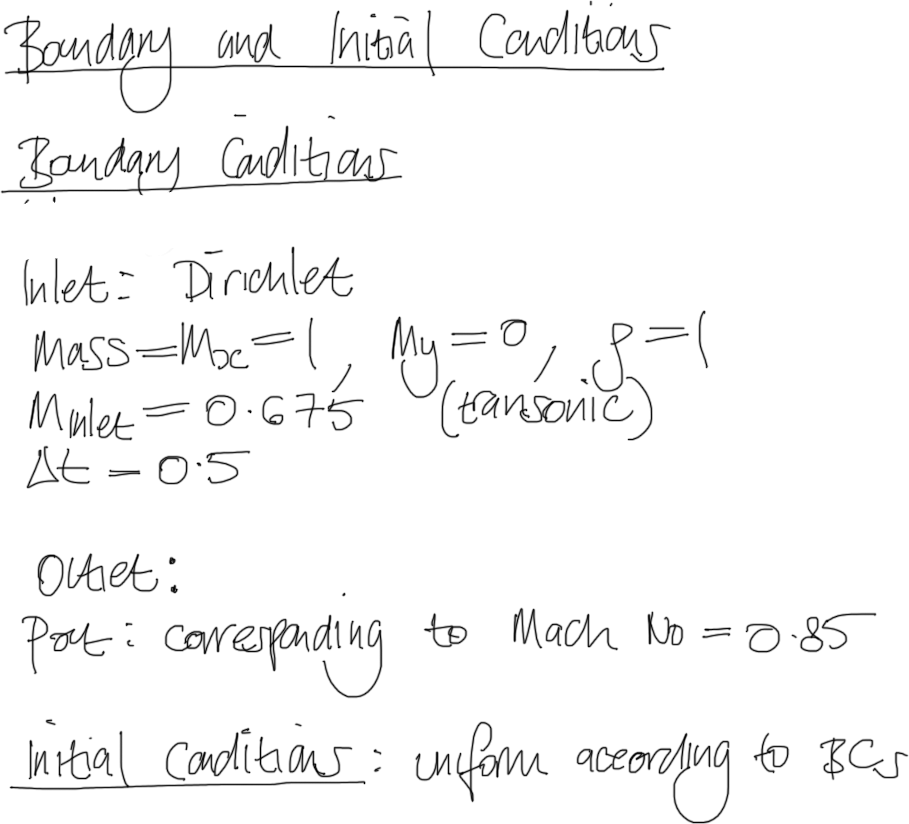 Boundary and Initial Conditions
Boundary Conditions
Inlet: Dirichlet
Mass=Mx=1, My=0, ρ=1
Minlet=0.675 (transonic)
Δt=0.5
Outlet:
Pout: corresponding to Mach No=0.85
Initial Conditions: uniform according to BCs